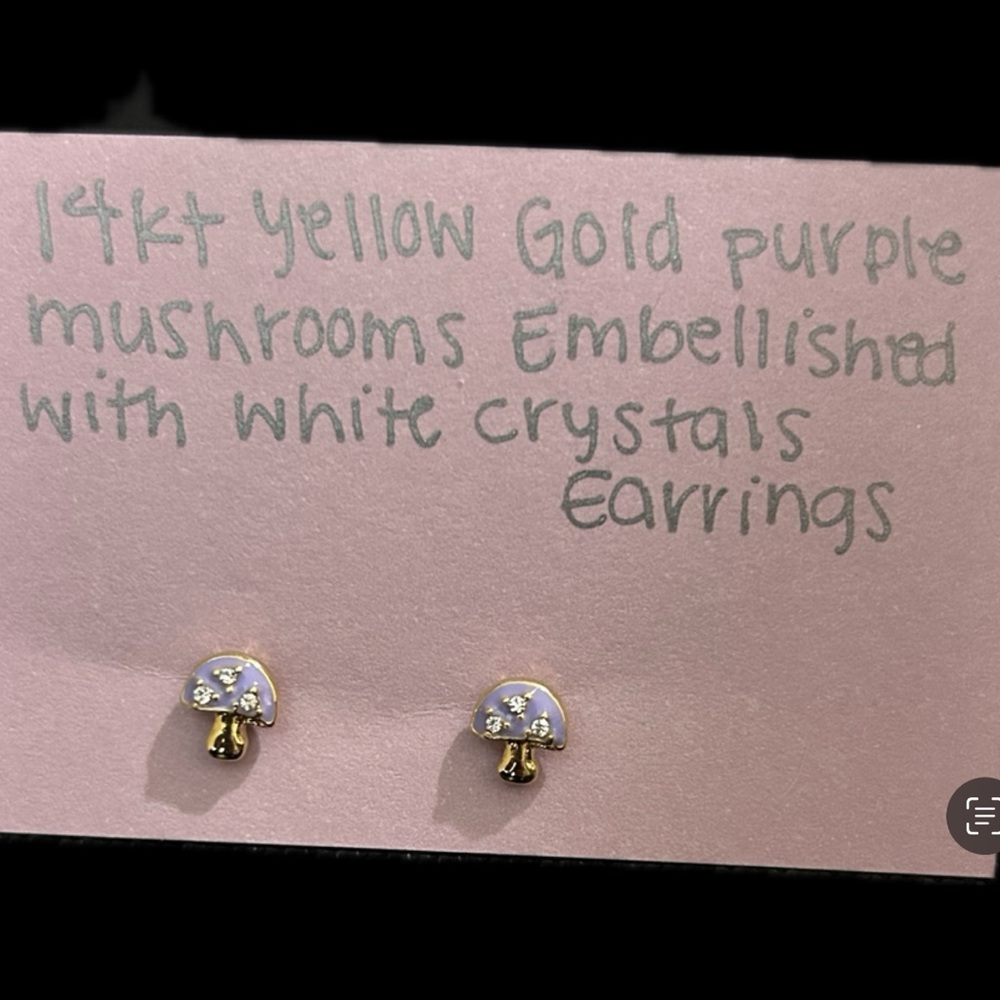 14kt yellow Gold purple
mushrooms Embellished
with white crystals
Earrings